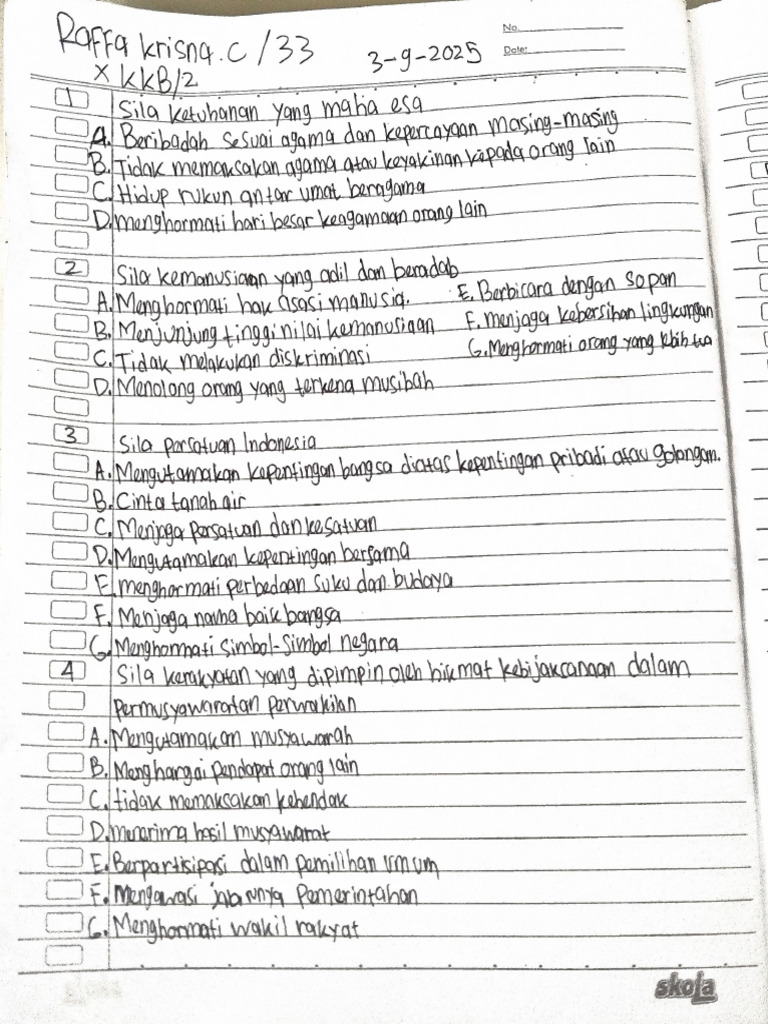 Raffa krisna.c /33
X KKB/2
3-9-2025
No.
Date:
1 Sila ketuhanan yang maha esa
A. Beribadah sesuai agama dan kepercayaan masing-masing
B. Tidak memaksakan agama atau keyakinan kepada orang lain
C. Hidup rukun antar umat beragama
D. menghormati hari besar keagamaan orang lain
2 Sila kemanusiaan yang adil dan beradab
A. Menghormati hak asasi manusia. E. Berbicara dengan sopan
B. Menjunjung tinggi nilai kemanusiaan F. menjaga kebersihan lingkungan
C. Tidak melakukan diskriminasi G. Menghormati orang yang lebih tua
D. Menolong orang yang terkena musibah
3 Sila persatuan Indonesia
A. Mengutamakan kepentingan bangsa diatas kepentingan pribadi atau golongan.
B. Cinta tanah air
C. Menjaga persatuan dan kesatuan
D. Mengutamakan kepentingan bersama
E. menghormati perbedaan suku dan budaya
F. Menjaga nama baik bangsa
G. Menghormati simbol-simbol negara
4 Sila kerakyatan yang dipimpin oleh hikmat kebijaksanaan dalam
permusyawaratan perwakilan
A. Mengutamakan musyawarah
B. Menghargai pendapat orang lain
C. tidak memaksakan kehendak
D. menerima hasil musyawarat
E. Berpartisipasi dalam pemilihan umum
F. Mengawasi jalannya Pemerintahan
G. Menghormati wakil rakyat
skola